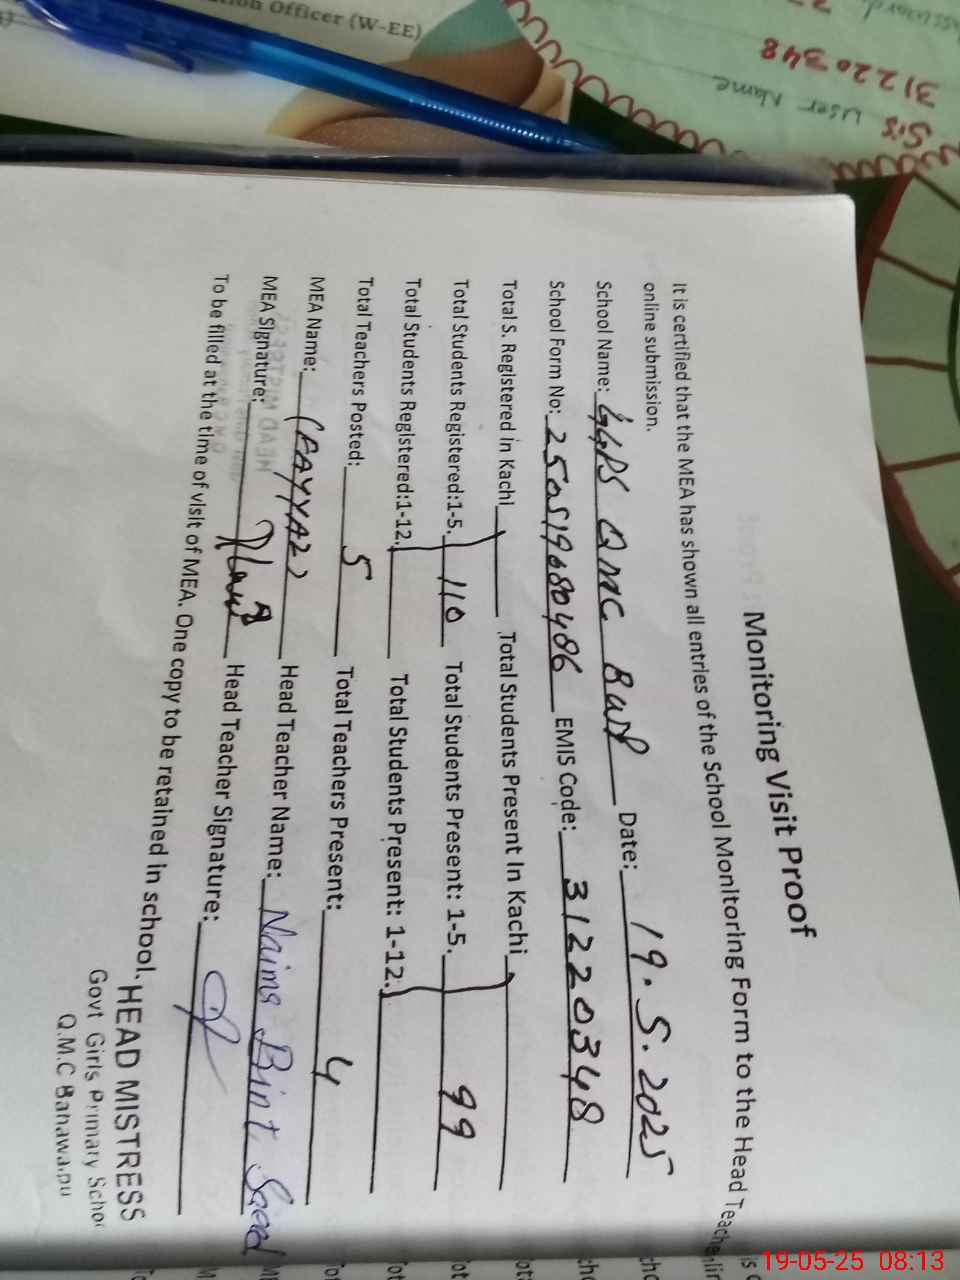 Monitoring Visit Proof
It is certified that the MEA has shown all entries of the School Monitoring Form to the Head Teacher
online submission.
School Name: GGPS QMC BWP Date: 19.5.2025
School Form No: 2505190680486 EMIS Code: 31220348
Total S. Registered in Kachi Total Students Present In Kachi
Total Students Registered:1-5. 110 Total Students Present: 1-5. 99
Total Students Registered:1-12. Total Students Present: 1-12.
Total Teachers Posted: 5 Total Teachers Present: 4
MEA Name: (FAYYAZ) Head Teacher Name: Naima Bint Saeed
MEA Signature: Head Teacher Signature:
To be filled at the time of visit of MEA. One copy to be retained in school.
HEAD MISTRESS
Govt Girls Primary Schoo
Q.M.C Bahawa.pu
Officer (W-EE)
SiS User Name
31220348
19-05-25 08:13